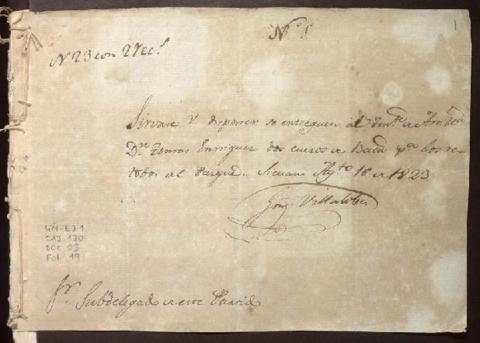 Nº 1
1
Nº 23 con 2 Rec.s
Sirvase V. disponer se entreguen al Ten.te de
Dn. Tomas Enriquez dos cueros de Baca pa. los re=
tobos al Parque. Sicuani Agto 16 de 1823
Villalobos
CAJ 130
DOC 23
Fol 19
Sr. Subdelegado de este Partido